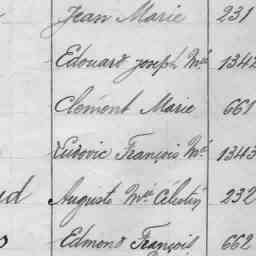 Jean Marie 231
Edouard Joseph Mie 1342
Clément Marie 661
Ludovic François Mie 1343
Auguste Mie Célestin 232
Edmond François 662